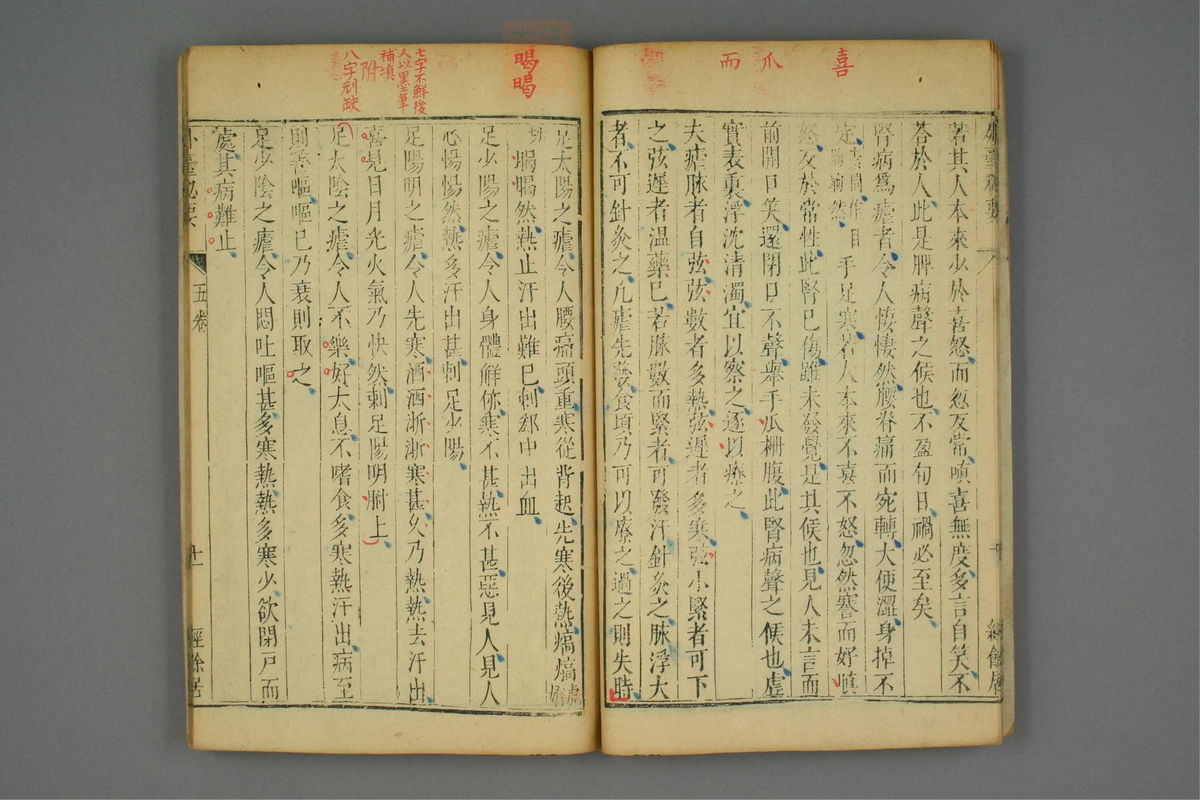 喜
爪
而
若其人本來少於喜怒而忽反常嗔喜無度多言自笑不
荅於人此是脾病聲之候也不盈旬日禍必至矣
腎病為瘧者令人悽悽然腰脊痛而宛轉大便澀身掉不
定手足寒若人本來不喜不怒忽然謇而好嗔
怒反於常性此腎已傷雖未發覺是其候也見人未言而
前開口笑還閉口不聲舉手瓜柵腹此腎病聲之候也虛
實表裏浮沈清濁宜以察之逐以療之
夫瘧脉者自弦弦數者多熱弦遲者多寒弦小緊者可下
之弦遲者温藥已若脉數而緊者可發汗針灸之脉浮大
者不可針灸之凡瘧先發食頃乃可以療之過之則失時
暍暍
七字不鮮後
人以墨筆
補填
附
八字刓缺
足太陽之瘧令人腰痛頭重寒從背起先寒後熱熇熇
暍暍然熱止汗出難已刺郄中出血
足少陽之瘧令人身體解㑊寒不甚熱不甚惡見人見人
心惕惕然熱多汗出甚刺足少陽
足陽明之瘧令人先寒洒洒淅淅寒甚久乃熱熱去汗出
喜見日月光火氣乃快然刺足陽明胕上
足太陰之瘧令人不樂好太息不嗜食多寒熱汗出病至
則善嘔嘔已乃衰則取之
足少陰之瘧令人悶吐嘔甚多寒熱熱多寒少欲閉戶而
處其病難止
外臺秘要
五卷
十一
經餘居